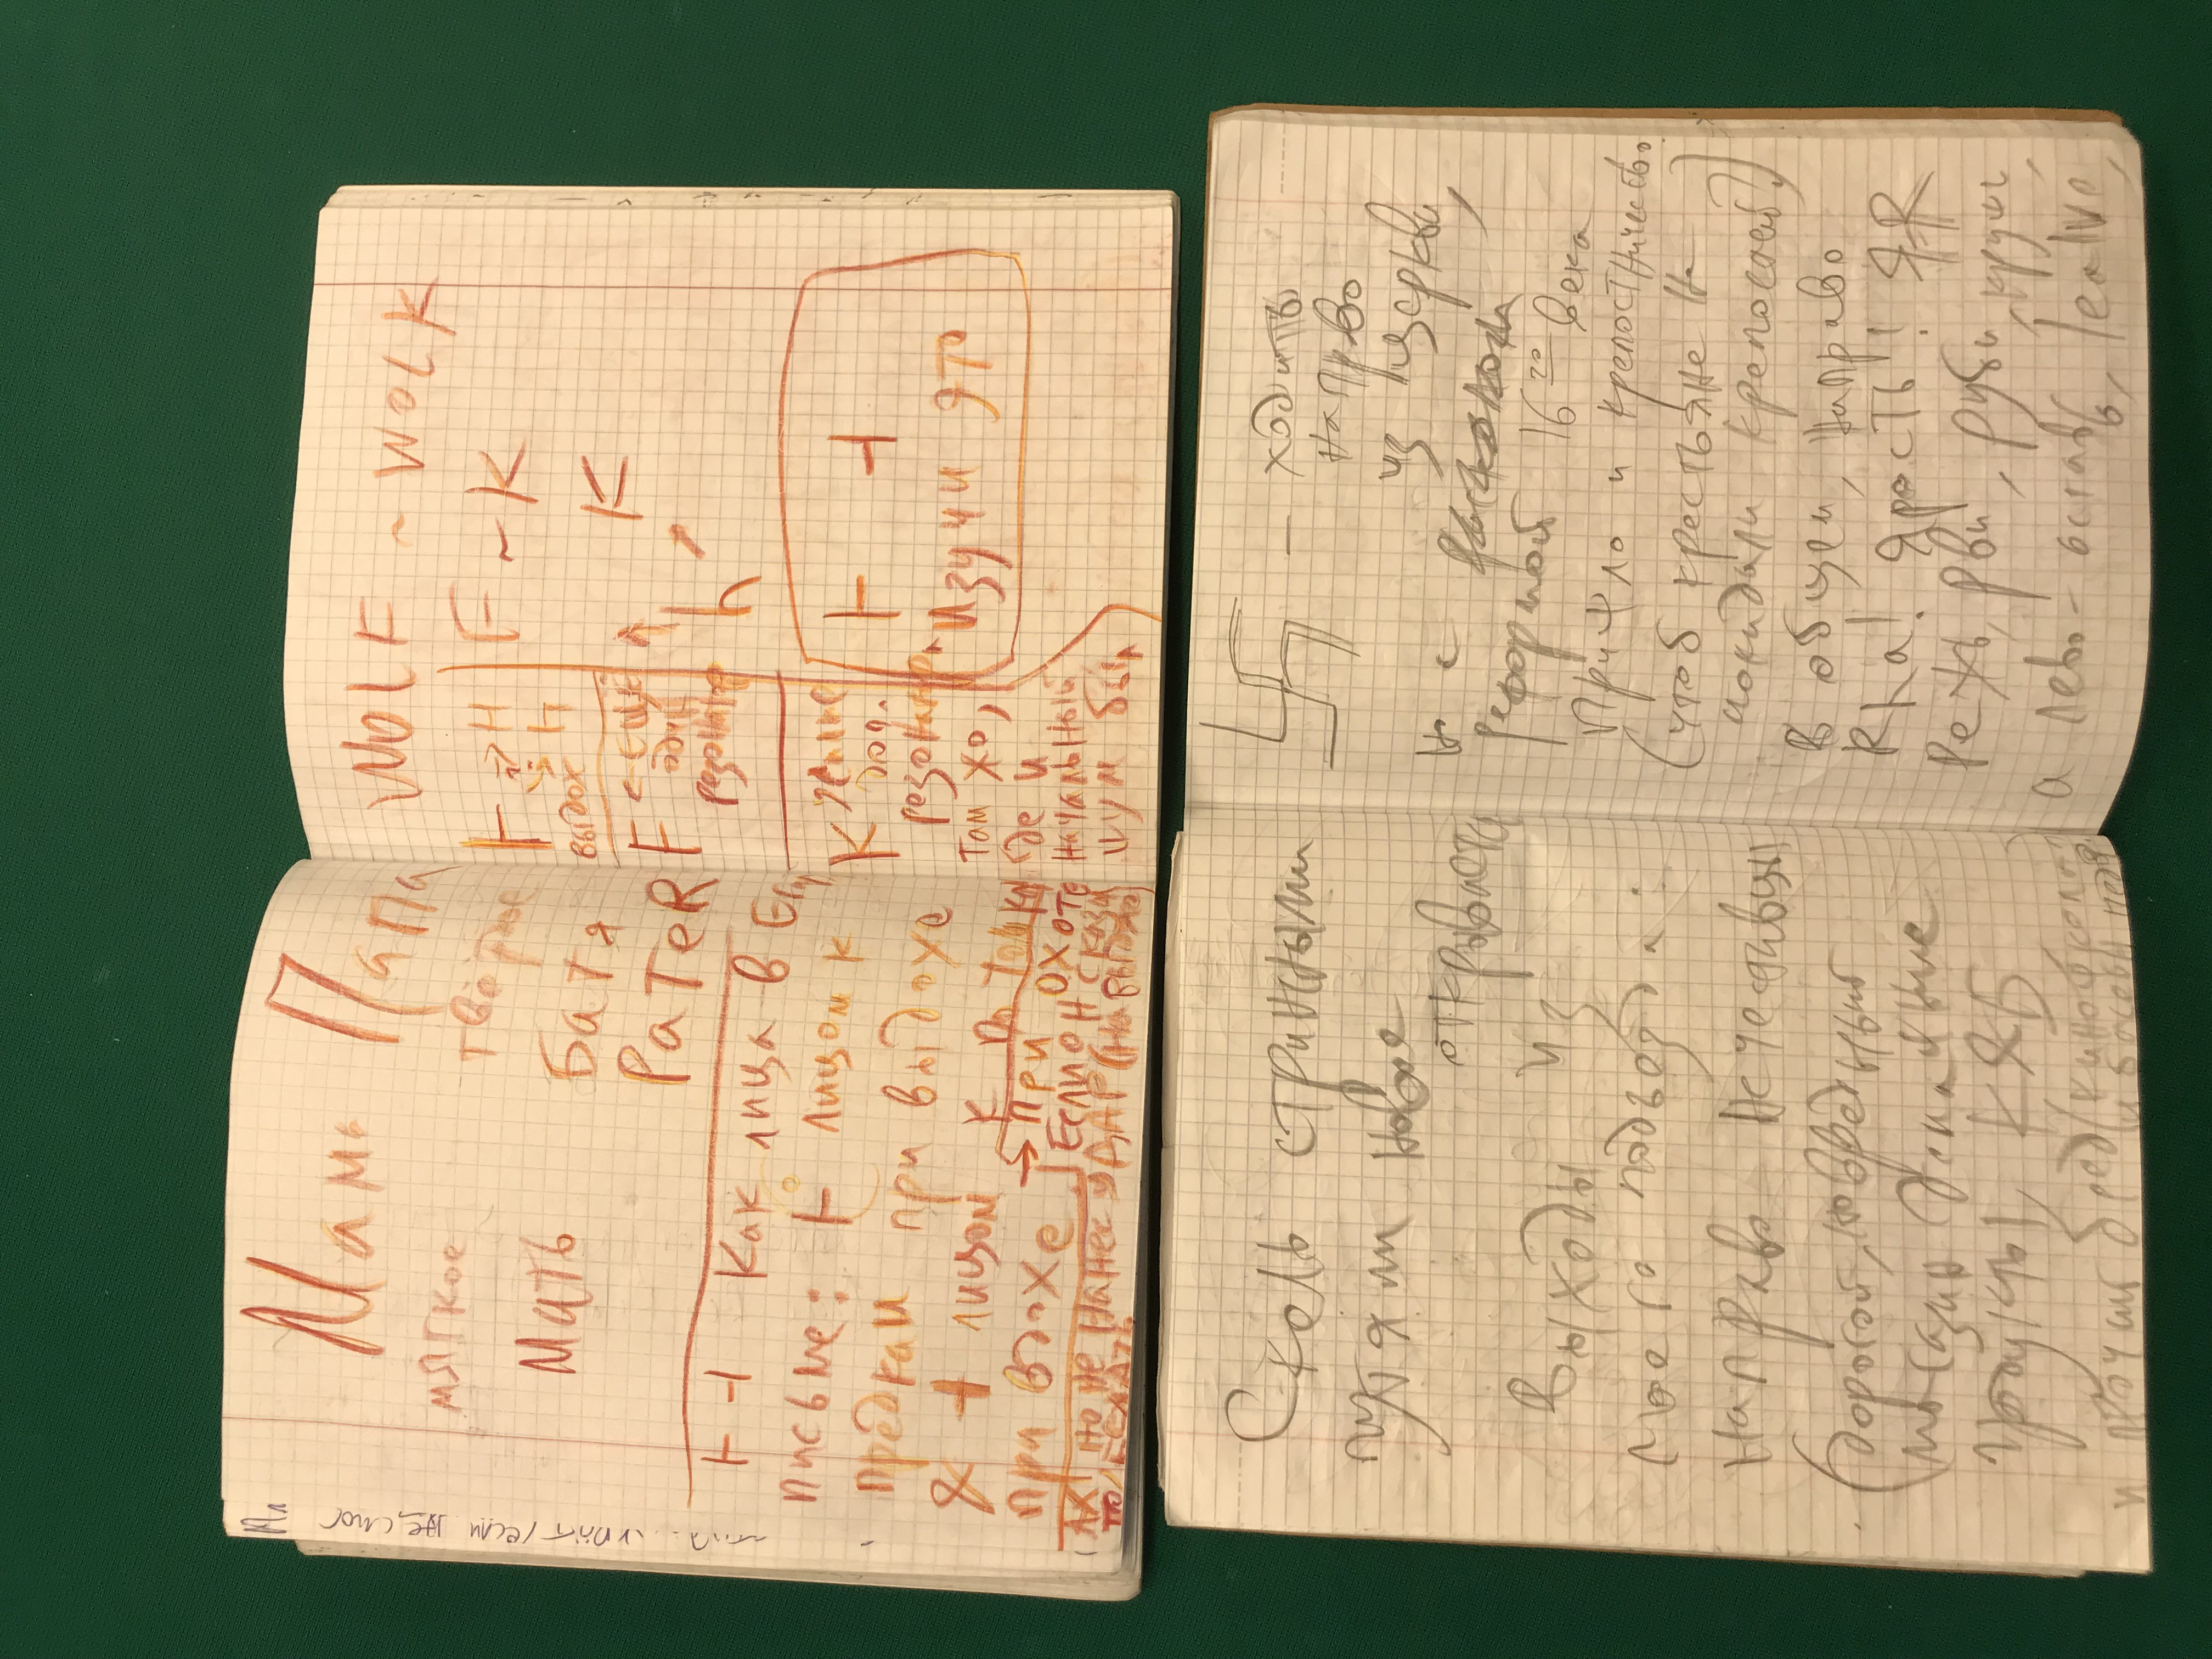 Мама Папа
мягкое твёрдое
Мать Батя
PaTeR
Ⱶ Ꟶ Как лица в Егип
письме: Ⱶ лицом к
предкам при выдохе
& Ꟶ лицом
при вдохе
к потомкам
→ при охоте
Если он сказал
АХ, но не нанес УДАР (на выдохе)
то
/если не смог
WOLF ~ WOLK
Ⱶ → H
h
выдох
F ← ЕЩЁ
один
резонатор
K усиление
доп.
резонатора
там же,
где и
начальный
шум был
F ~ K
K
h
Ⱶ Ꟶ
Изучи это
Сколь странными
путями новое
открывается
Выходы из
моего подъезда:
направо нечестивцы
(дорогой, но вредный
магазин
продукты, К&Б,
и прочий бред
卐 — ходить
направо
из церкви,
но с
реформой 16го века
пришло и крепостничество
(чтоб крестьяне не
покидали крепостей?)
В общем, направо
Rha! Ярость! ЯR
Режь, рви, руби, круши,
а лево - оставь, lealve,